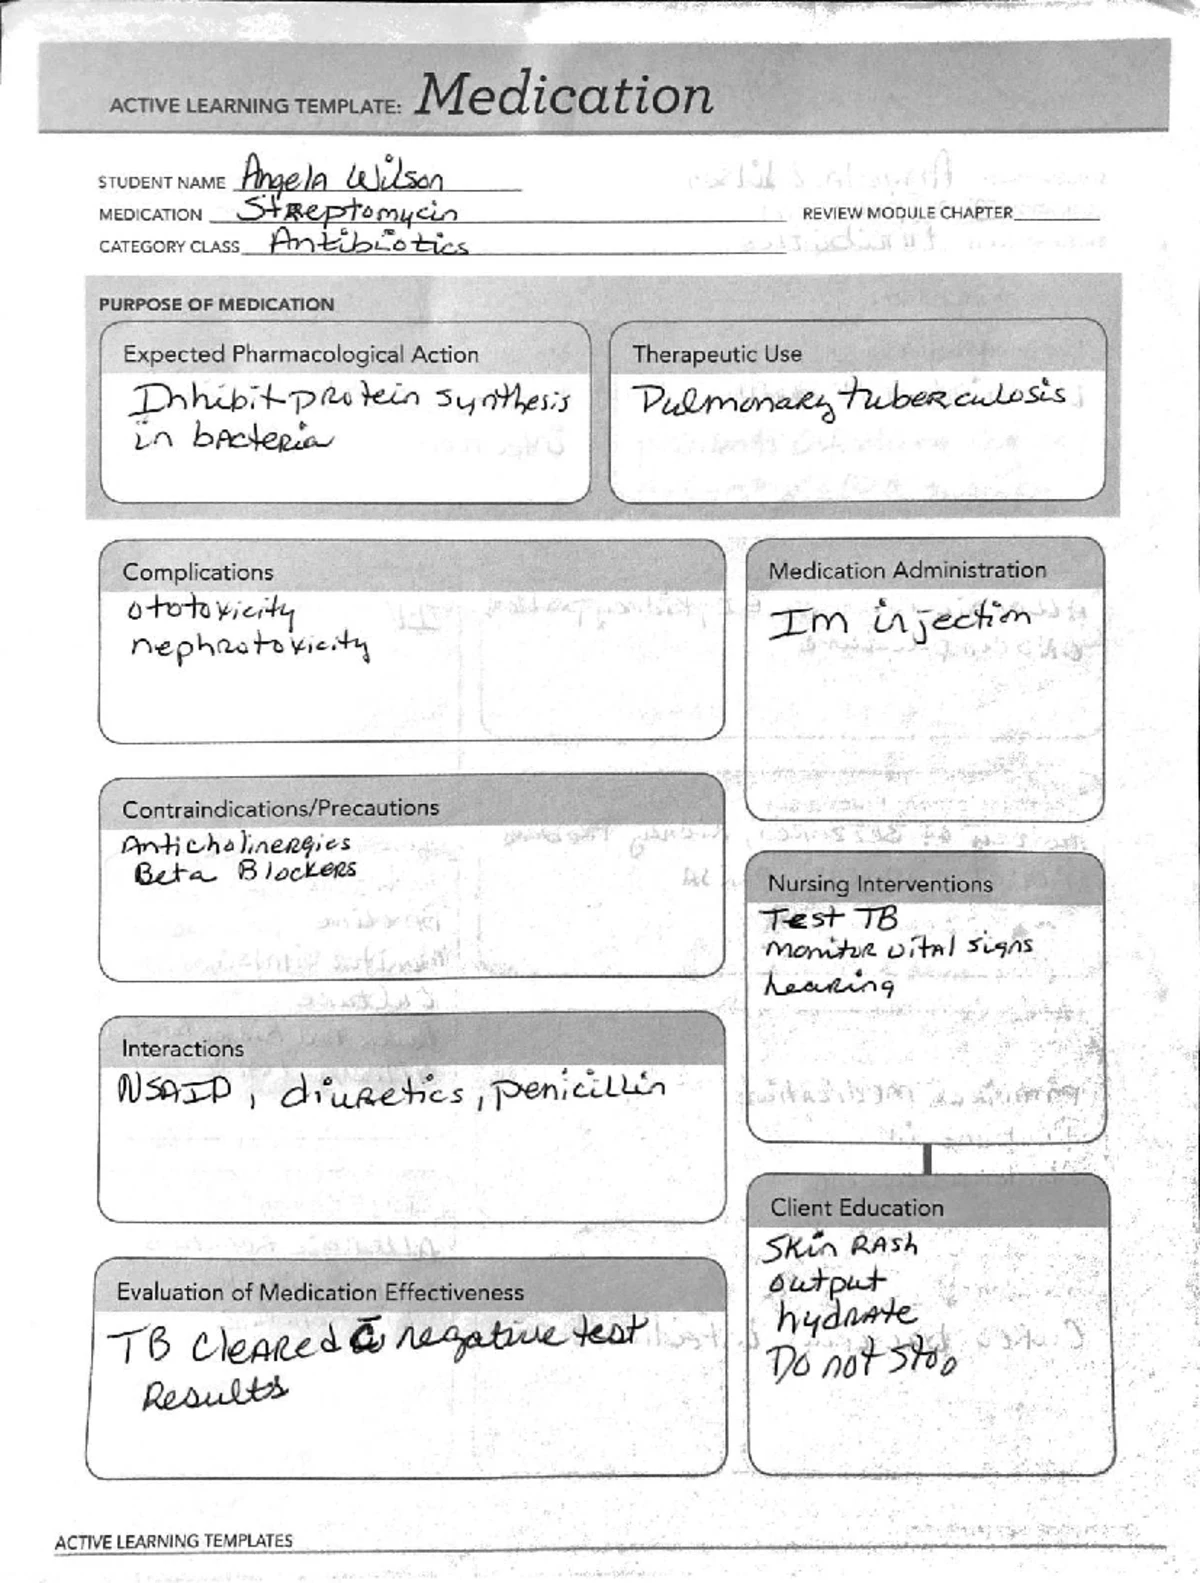 ACTIVE LEARNING TEMPLATE: Medication
STUDENT NAME Angela Wilson
MEDICATION Streptomycin REVIEW MODULE CHAPTER
CATEGORY CLASS Antibiotics
PURPOSE OF MEDICATION
Expected Pharmacological Action
Inhibit protein synthesis
in bacteria
Therapeutic Use
Pulmonary tuberculosis
Complications
ototoxicity
nephrotoxicity
Medication Administration
Im injection
Contraindications/Precautions
Anticholinergics
Beta Blockers
Nursing Interventions
Test TB
monitor vital signs
hearing
Interactions
NSAID, diuretics, penicillin
Client Education
Skin RAsh
output
hydrate
Do not stop
Evaluation of Medication Effectiveness
TB cleared c̄ negative test
Results
ACTIVE LEARNING TEMPLATES